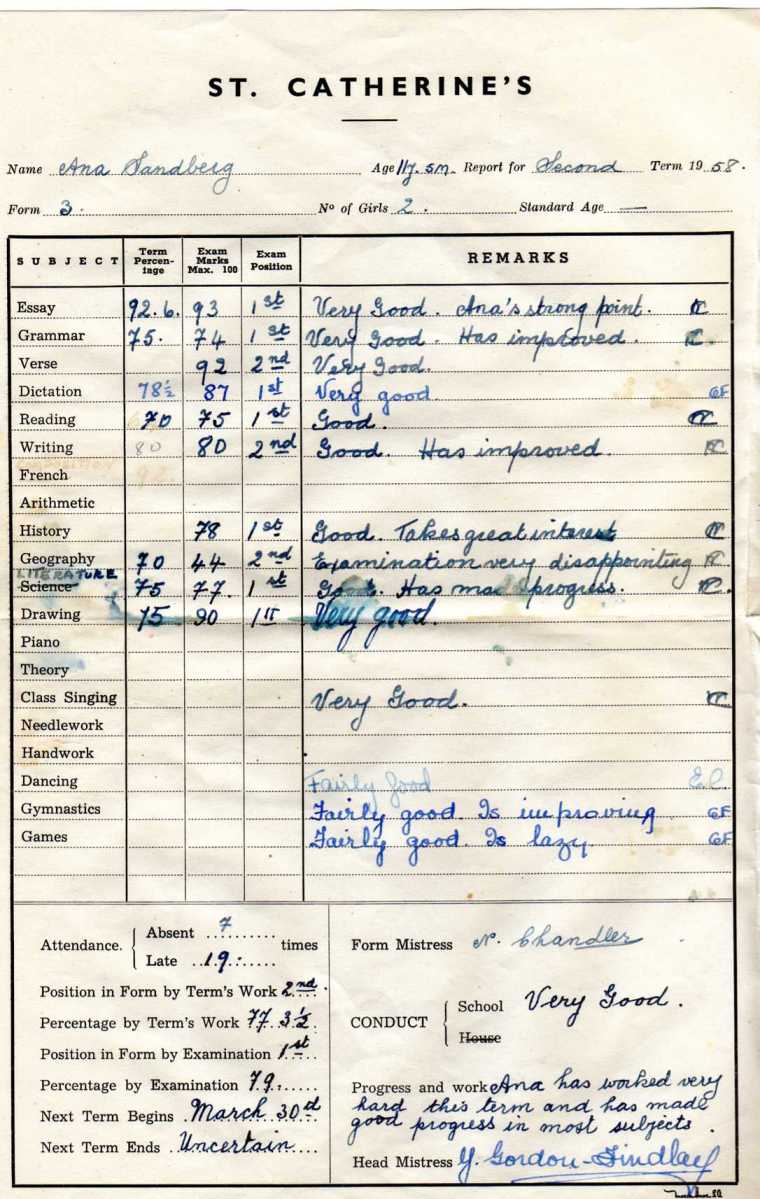 ST. CATHERINE'S
Name Ana Sandberg Age 11y. 5m. Report for Second Term 1958.
Form 3. No of Girls 2. Standard Age —
SUBJECT Term Percentage Exam Marks Max. 100 Exam Position REMARKS
Essay 92.6. 93 1st Very Good. Ana's strong point.
Grammar 75. 74 1st Very Good. Has improved.
Verse 92 2nd Very Good.
Dictation 78½ 87 1st Very good. GF
Reading 70 75 1st Good.
Writing 80 80 2nd Good. Has improved.
COMPOSITION 92.
French
Arithmetic
History 78 1st Good. Takes great interest
Geography 70 44 2nd Examination very disappointing
LITERATURE
Science 75 77. 1st Good. Has made progress.
Drawing 75 90 1st Very good.
Piano
Theory
Class Singing Very Good.
Needlework
Handwork
Dancing Fairly good E.C.
Gymnastics Fairly good. Is improving GF
Games Fairly good. Is lazy. GF
Attendance. Absent 7 times
Late 19.
Position in Form by Term's Work 2nd.
Percentage by Term's Work 77.3½
Position in Form by Examination 1st
Percentage by Examination 79.
Next Term Begins March 30d
Next Term Ends Uncertain
Form Mistress N. Chandler
CONDUCT School Very Good.
House
Progress and work Ana has worked very
hard this term and has made
good progress in most subjects.
Head Mistress Y. Gordon-Findlay